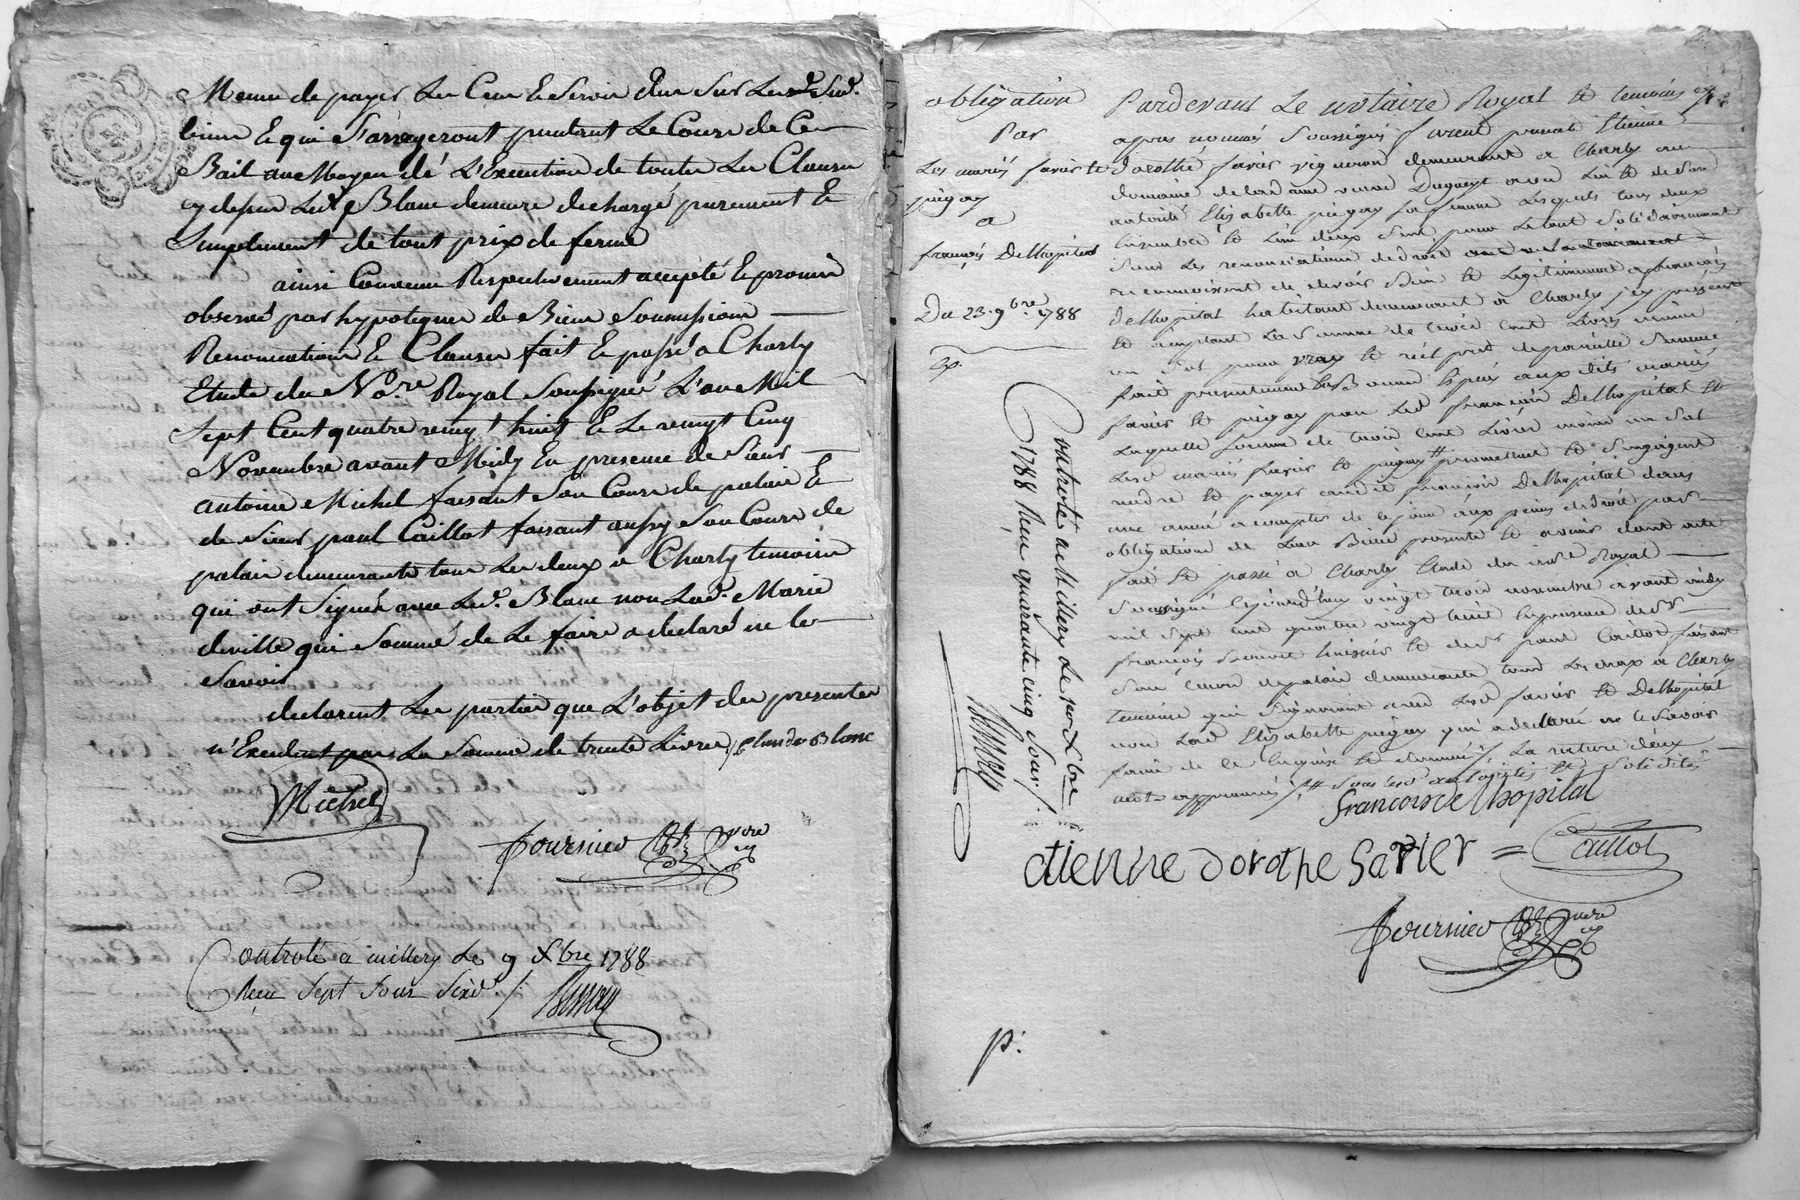 Meme de payer Les Cens & Servis dûs sur Lesd. Sus.
biens & qui S'arrageront pendant Le Cours de Ce
Bail au Moyen dé L'Execution de toutes Les Clauses
cy dessus Led. Blanc demeure dechargé purement &
Simplement de tout prix de ferme
ainsi Convenu Respectivement accepté & promis
observé par hypoteques de Biens Soumissions
Renonciations & Clauses fait & passé a Charly
Etude du No.re Royal Soussigné L'an Mil
Sept Cent quatre vingt huit & Le vingt Cinq
Novembre avant Midy En presence de Sieur
antoine Michel faisant Son Cours de palais &
de Sieur paul Caillot faisant aussy Son Cours de
palais demeurants tous Les deux a Charly temoins
qui ont Signés avec Led. Blanc non Lad. Marie
deville qui Sommé de Le faire a declaré ne le
Savoir
declarent Les parties que L'objet des presentes
n'Excedent pas La Somme de trente Livres / Claude Blanc
Michel
fournier
Controlé a millery Le 9 Xbre 1788
Reçu Sept Sous Six d. /.
obligation
Par
Les mariés favier &
piegay
a
françois Delhopital
Du 23. 9bre. 1788
Controlé a Millery Le 1er Xbre
1788 Reçu quarante cinq Sous /.
Pardevant Le notaire Royal & temoins cy
apres nommés Soussignés furent presents Etienne
dorothé favier vigneron demeurant a Charly au
domaine de la dame veuve Dugueyt avec Lui & de Son
autorité Elisabette piegay sa femme Lesquels tous deux
Ensemble & L'un d'eux Seul pour Le tout Solidairement
Sous Les renonciations de droit
reconnoissent de devoir Bien & Legitimement a françois
Delhopital habitant demeurant a Charly icy present
& acceptant La Somme de trois Cent Livres moins
un Sol pour vray & réel prêt de pareille Somme
fait presentement aux dits mariés
favier & piegay par Led. françois Delhopital
Laquelle Somme de trois Cent Livres moins un Sol
Lesd. mariés favier & piegay promettent & S'engagent
rendre & payer audit françois Delhopital dans
une année a compter de ce jour aux peines de droit par
obligation de Leurs Biens presents & avenir dont acte
fait & passé a Charly Etude du no.re Royal
Soussigné Cejourd'huy vingt trois novembre avant midy
mil Sept cent quatre vingt huit En presence de Sr.
françois & de Sr. paul Caillot faisant
Son Cours de palais demeurants tous Les deux a Charly
temoins qui Signeront avec Led. favier & Delhopital
non Lad. Elisabette piegay qui a declaré ne le Savoir
faire de ce Enquise & Sommée La rature deux
mots approuvés
francois de lhopital
etienne dorothe Favier = Caillot
fournier
p.